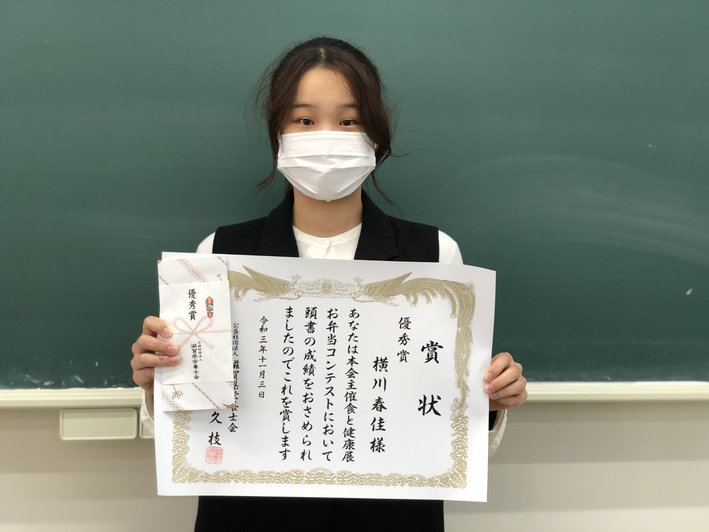 賞状
優秀賞
横川春佳様
あなたは本会主催食と健康展
お弁当コンテストにおいて
頭書の成績をおさめられ
ましたのでこれを賞します
令和三年十一月三日
公益社団法人 滋賀県栄養士会
久枝
優秀賞
公益社団法人
滋賀県栄養士会